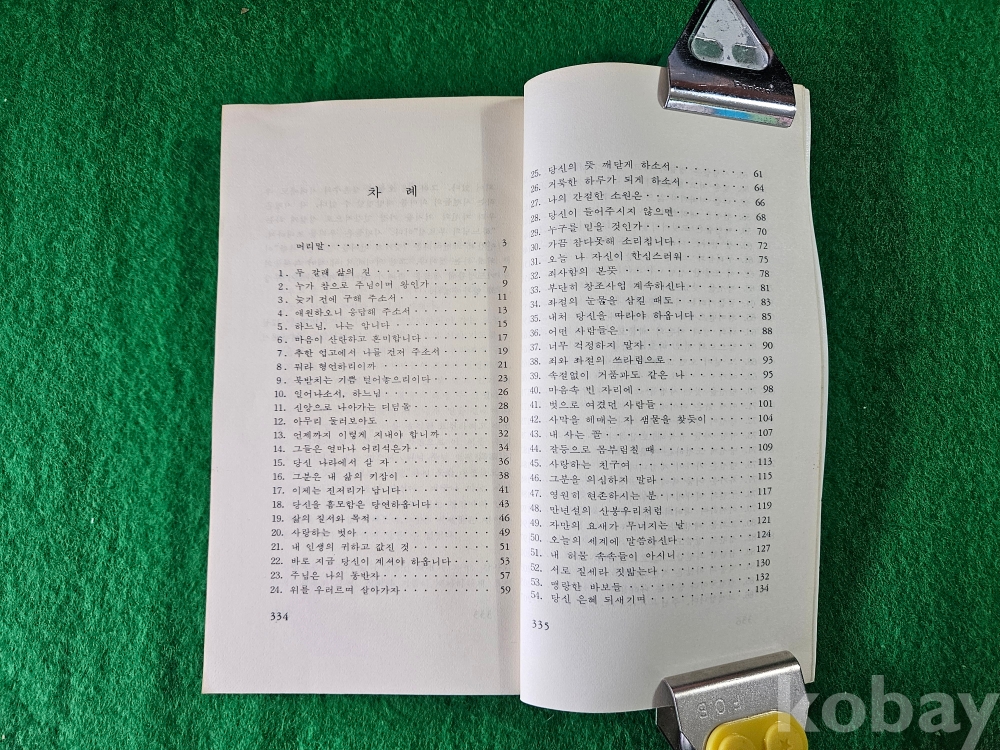 차 례
머리말 · · · · · · · · · · · · · · · · · · · 3
1. 두 갈래 삶의 길 · · · · · · · · · · · · · 7
2. 누가 참으로 주님이며 왕인가 · · · · · · · 9
3. 늦기 전에 구해 주소서 · · · · · · · · · · 11
4. 애원하오니 응답해 주소서 · · · · · · · · 13
5. 하느님, 나는 압니다 · · · · · · · · · · · 15
6. 마음이 산란하고 혼미합니다 · · · · · · · 17
7. 추한 옥고에서 나를 건져 주소서 · · · · · 19
8. 뭐라 형언하리이까 · · · · · · · · · · · · 21
9. 북받치는 기쁨 털어놓으리이다 · · · · · · 23
10. 일어나소서, 하느님 · · · · · · · · · · · 26
11. 신앙으로 나아가는 디딤돌 · · · · · · · · 28
12. 아무리 둘러보아도 · · · · · · · · · · · 30
13. 언제까지 이렇게 지내야 합니까 · · · · · 32
14. 그들은 얼마나 어리석은가 · · · · · · · · 34
15. 당신 나라에서 살 자 · · · · · · · · · · 36
16. 그분은 내 삶의 키잡이 · · · · · · · · · 38
17. 이제는 진저리가 납니다 · · · · · · · · · 41
18. 당신을 흠모함은 당연하옵니다 · · · · · · 43
19. 삶의 질서와 목적 · · · · · · · · · · · · 46
20. 사랑하는 벗아 · · · · · · · · · · · · · 49
21. 내 인생의 귀하고 값진 것 · · · · · · · · 51
22. 바로 지금 당신이 계셔야 하옵니다 · · · · 53
23. 주님은 나의 동반자 · · · · · · · · · · · 57
24. 위를 우러르며 살아가자 · · · · · · · · · 59
334
25. 당신의 뜻 깨닫게 하소서 · · · · · · · · 61
26. 거룩한 하루가 되게 하소서 · · · · · · · 64
27. 나의 간절한 소원은 · · · · · · · · · · · 66
28. 당신이 들어주시지 않으면 · · · · · · · · 68
29. 누구를 믿을 것인가 · · · · · · · · · · · 70
30. 가끔 참다못해 소리칩니다 · · · · · · · · 72
31. 오늘 나 자신이 한심스러워 · · · · · · · 75
32. 죄사함의 본뜻 · · · · · · · · · · · · · 78
33. 부단히 창조사업 계속하신다 · · · · · · · 81
34. 좌절의 눈물을 삼킬 때도 · · · · · · · · 83
35. 내처 당신을 따라야 하옵니다 · · · · · · 85
36. 어떤 사람들은 · · · · · · · · · · · · · 88
37. 너무 걱정하지 말자 · · · · · · · · · · · 90
38. 죄와 좌절의 쓰라림으로 · · · · · · · · · 93
39. 속절없이 거품과도 같은 나 · · · · · · · 95
40. 마음속 빈 자리에 · · · · · · · · · · · · 98
41. 벗으로 여겼던 사람들 · · · · · · · · · · 101
42. 사막을 헤매는 자 샘물을 찾듯이 · · · · · 104
43. 내 사는 꼴 · · · · · · · · · · · · · · 107
44. 갈등으로 몸부림칠 때 · · · · · · · · · · 109
45. 사랑하는 친구여 · · · · · · · · · · · · 113
46. 그분을 의심하지 말라 · · · · · · · · · · 115
47. 영원히 현존하시는 분 · · · · · · · · · · 117
48. 만년설의 산봉우리처럼 · · · · · · · · · 119
49. 자만의 요새가 무너지는 날 · · · · · · · 121
50. 오늘의 세계에 말씀하신다 · · · · · · · · 124
51. 내 허물 속속들이 아시니 · · · · · · · · 127
52. 서로 질세라 짓밟는다 · · · · · · · · · · 130
53. 맹랑한 바보들 · · · · · · · · · · · · · 132
54. 당신 은혜 되새기며 · · · · · · · · · · · 134
335
kobay